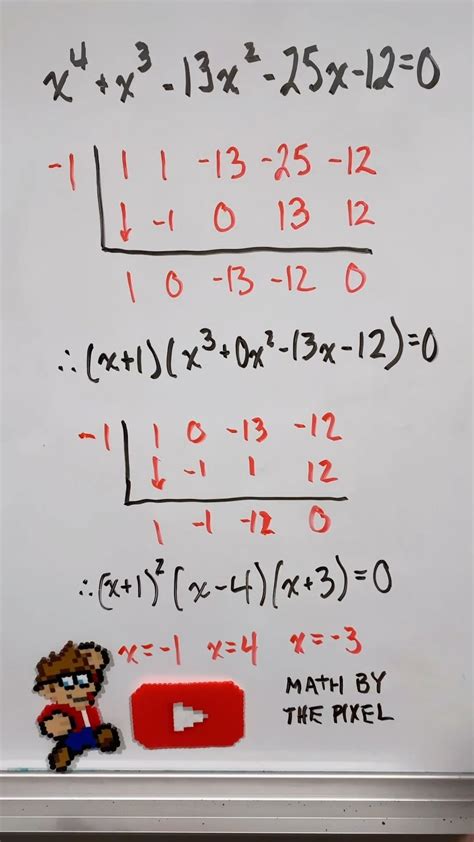 x⁴+x³-13x²-25x-12=0
-1 | 1 1 -13 -25 -12
↓ -1 0 13 12
1 0 -13 -12 0
∴(x+1)(x³+0x²-13x-12)=0
-1 | 1 0 -13 -12
↓ -1 1 12
1 -1 -12 0
∴(x+1)²(x-4)(x+3)=0
x=-1 x=4 x=-3
MATH BY
THE PIXEL